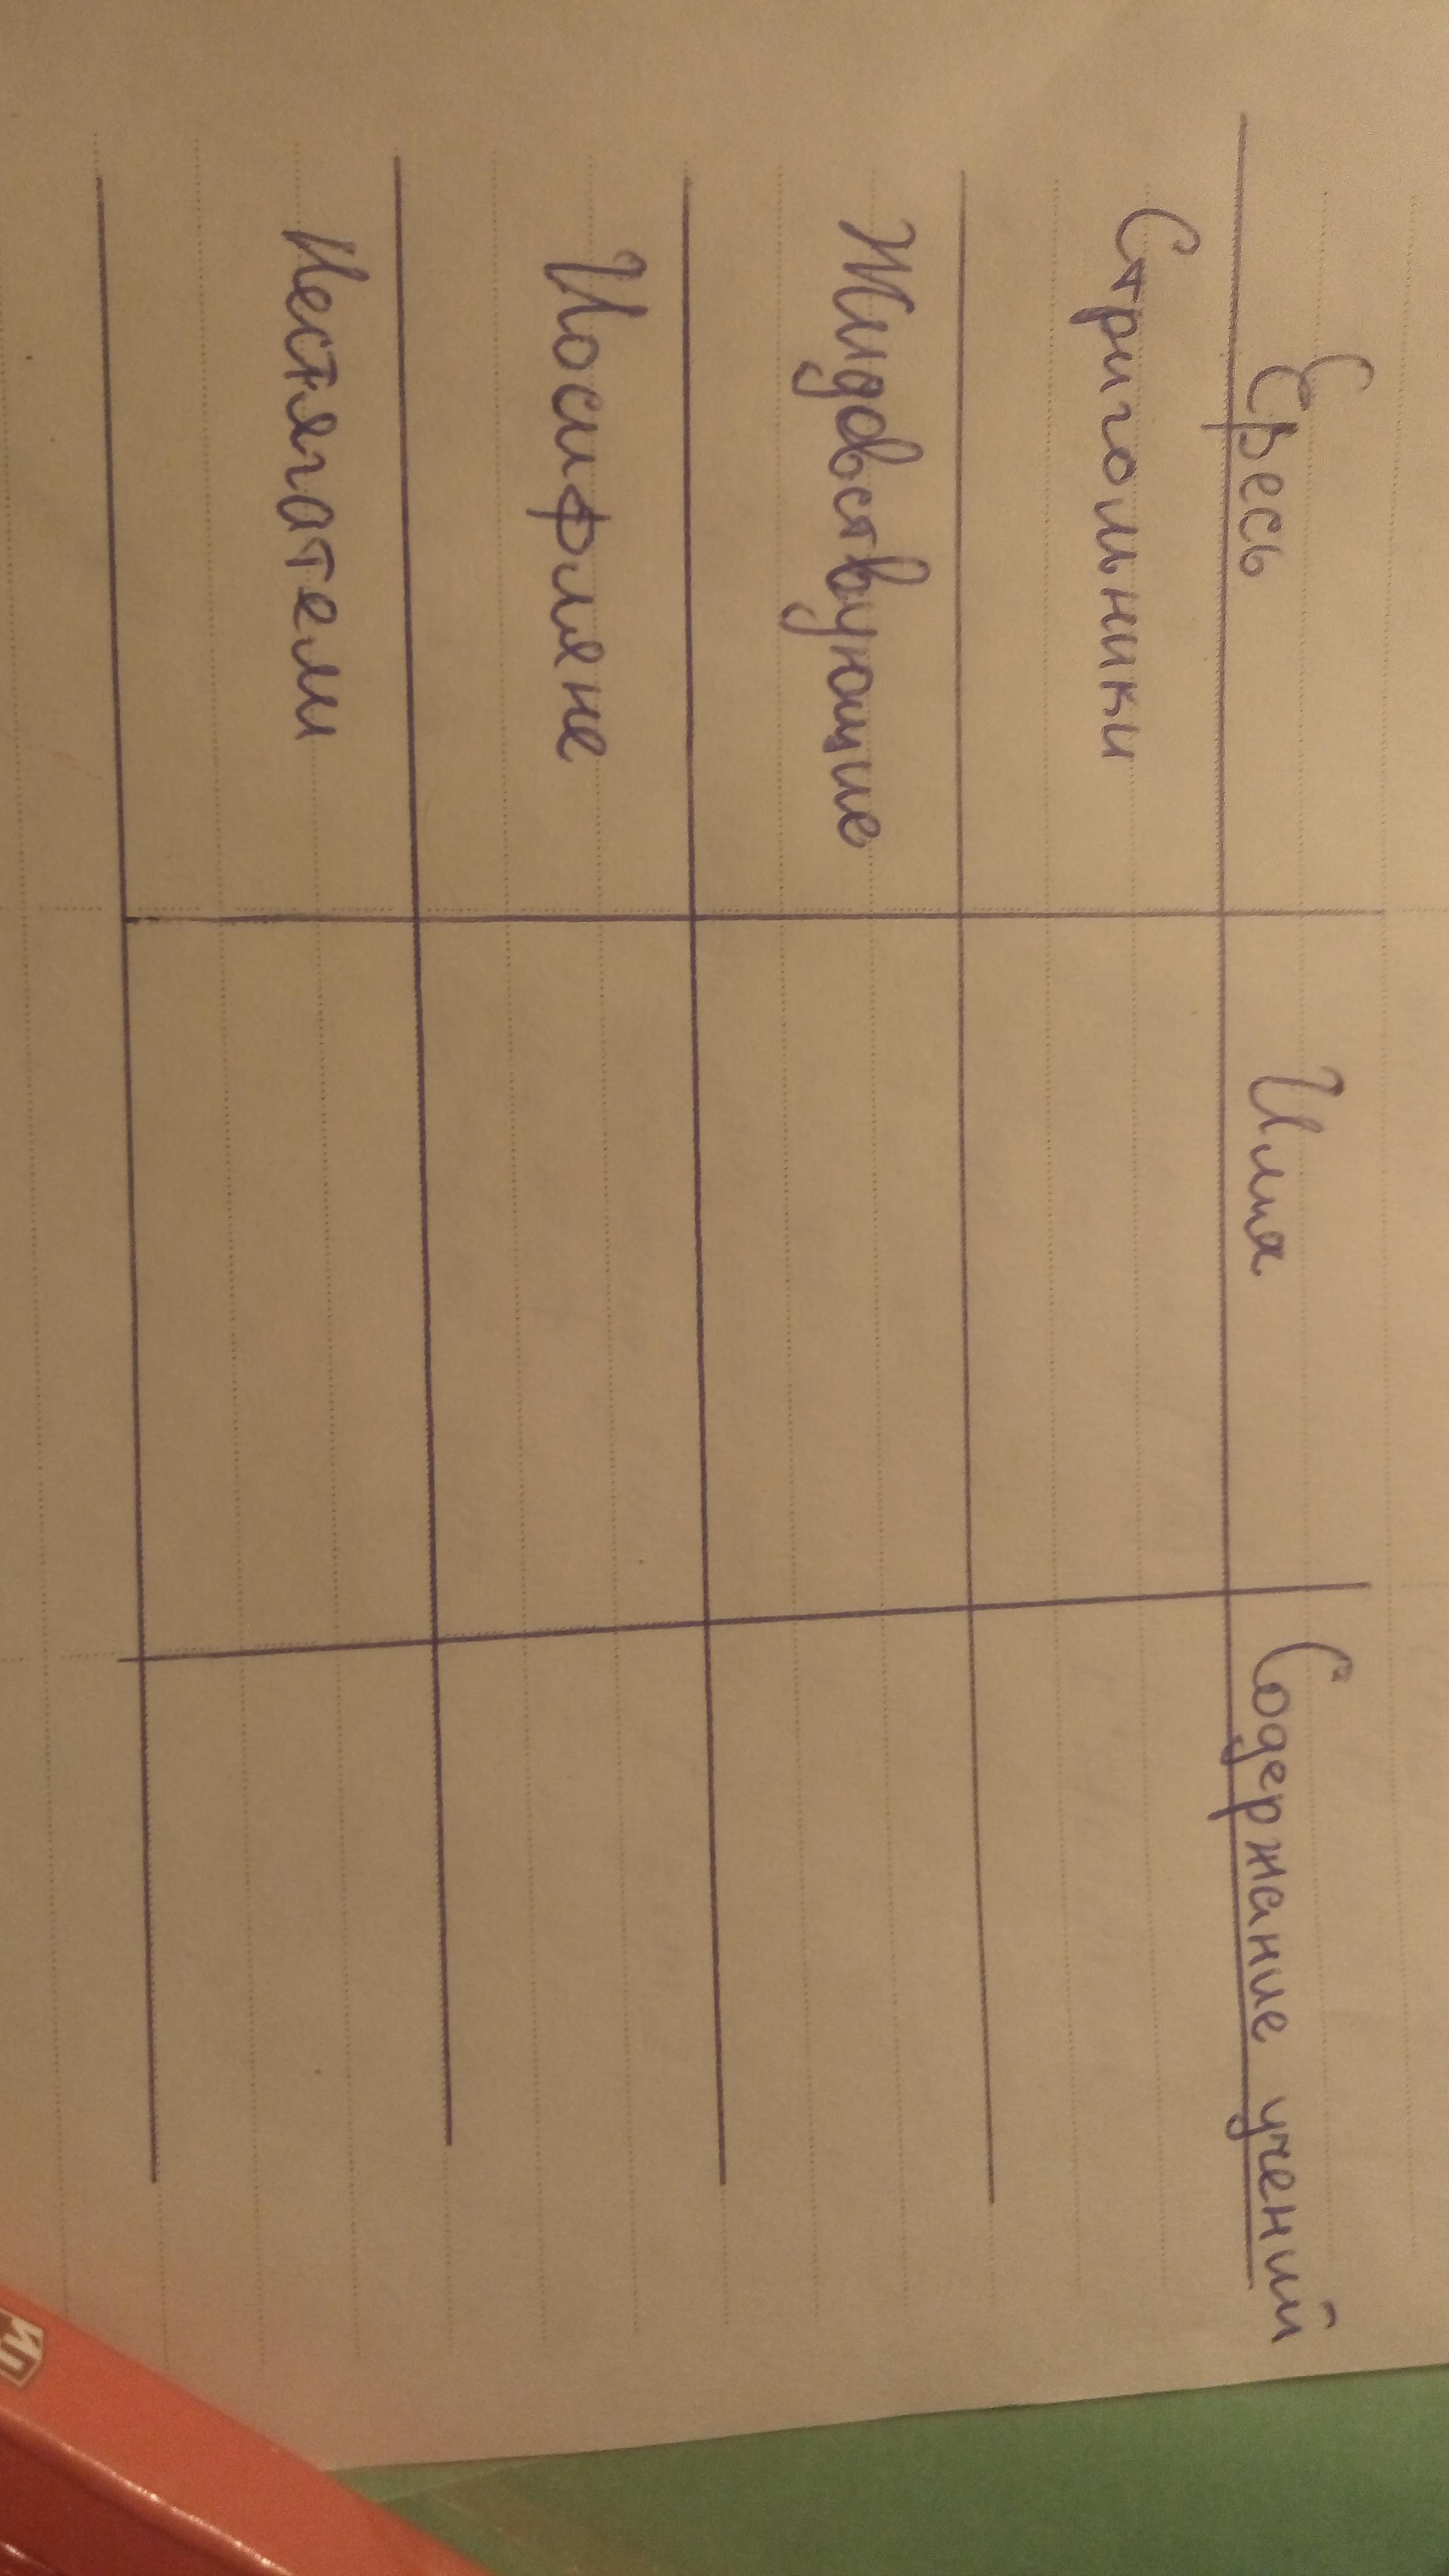 Ересь Имя Содержание учений
Стригольники
Жидовствующие
Иосифляне
Нестягатели